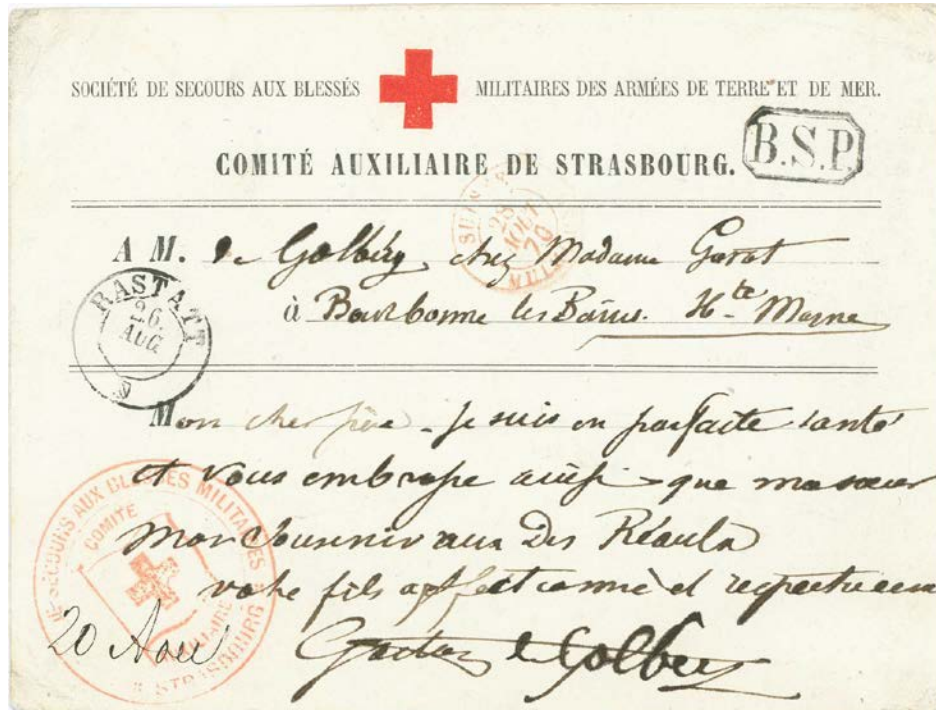 SOCIÉTÉ DE SECOURS AUX BLESSÉS MILITAIRES DES ARMÉES DE TERRE ET DE MER.
B.S.P.
COMITÉ AUXILIAIRE DE STRASBOURG.
28 AOUT 70
A M. de Golbéry, chez Madame Garat
à Bourbonne les Bains. Hte Marne
RASTATT
26.
AUG
Mon cher père. Je suis en parfaite santé
et vous embrasse ainsi que ma sœur
Mon souvenir aux Des
votre fils affectionné et respectueux
SECOURS AUX BLESSÉS MILITAIRES
COMITÉ AUXILIAIRE
STRASBOURG
20 Aout
Gaston de Golbéry